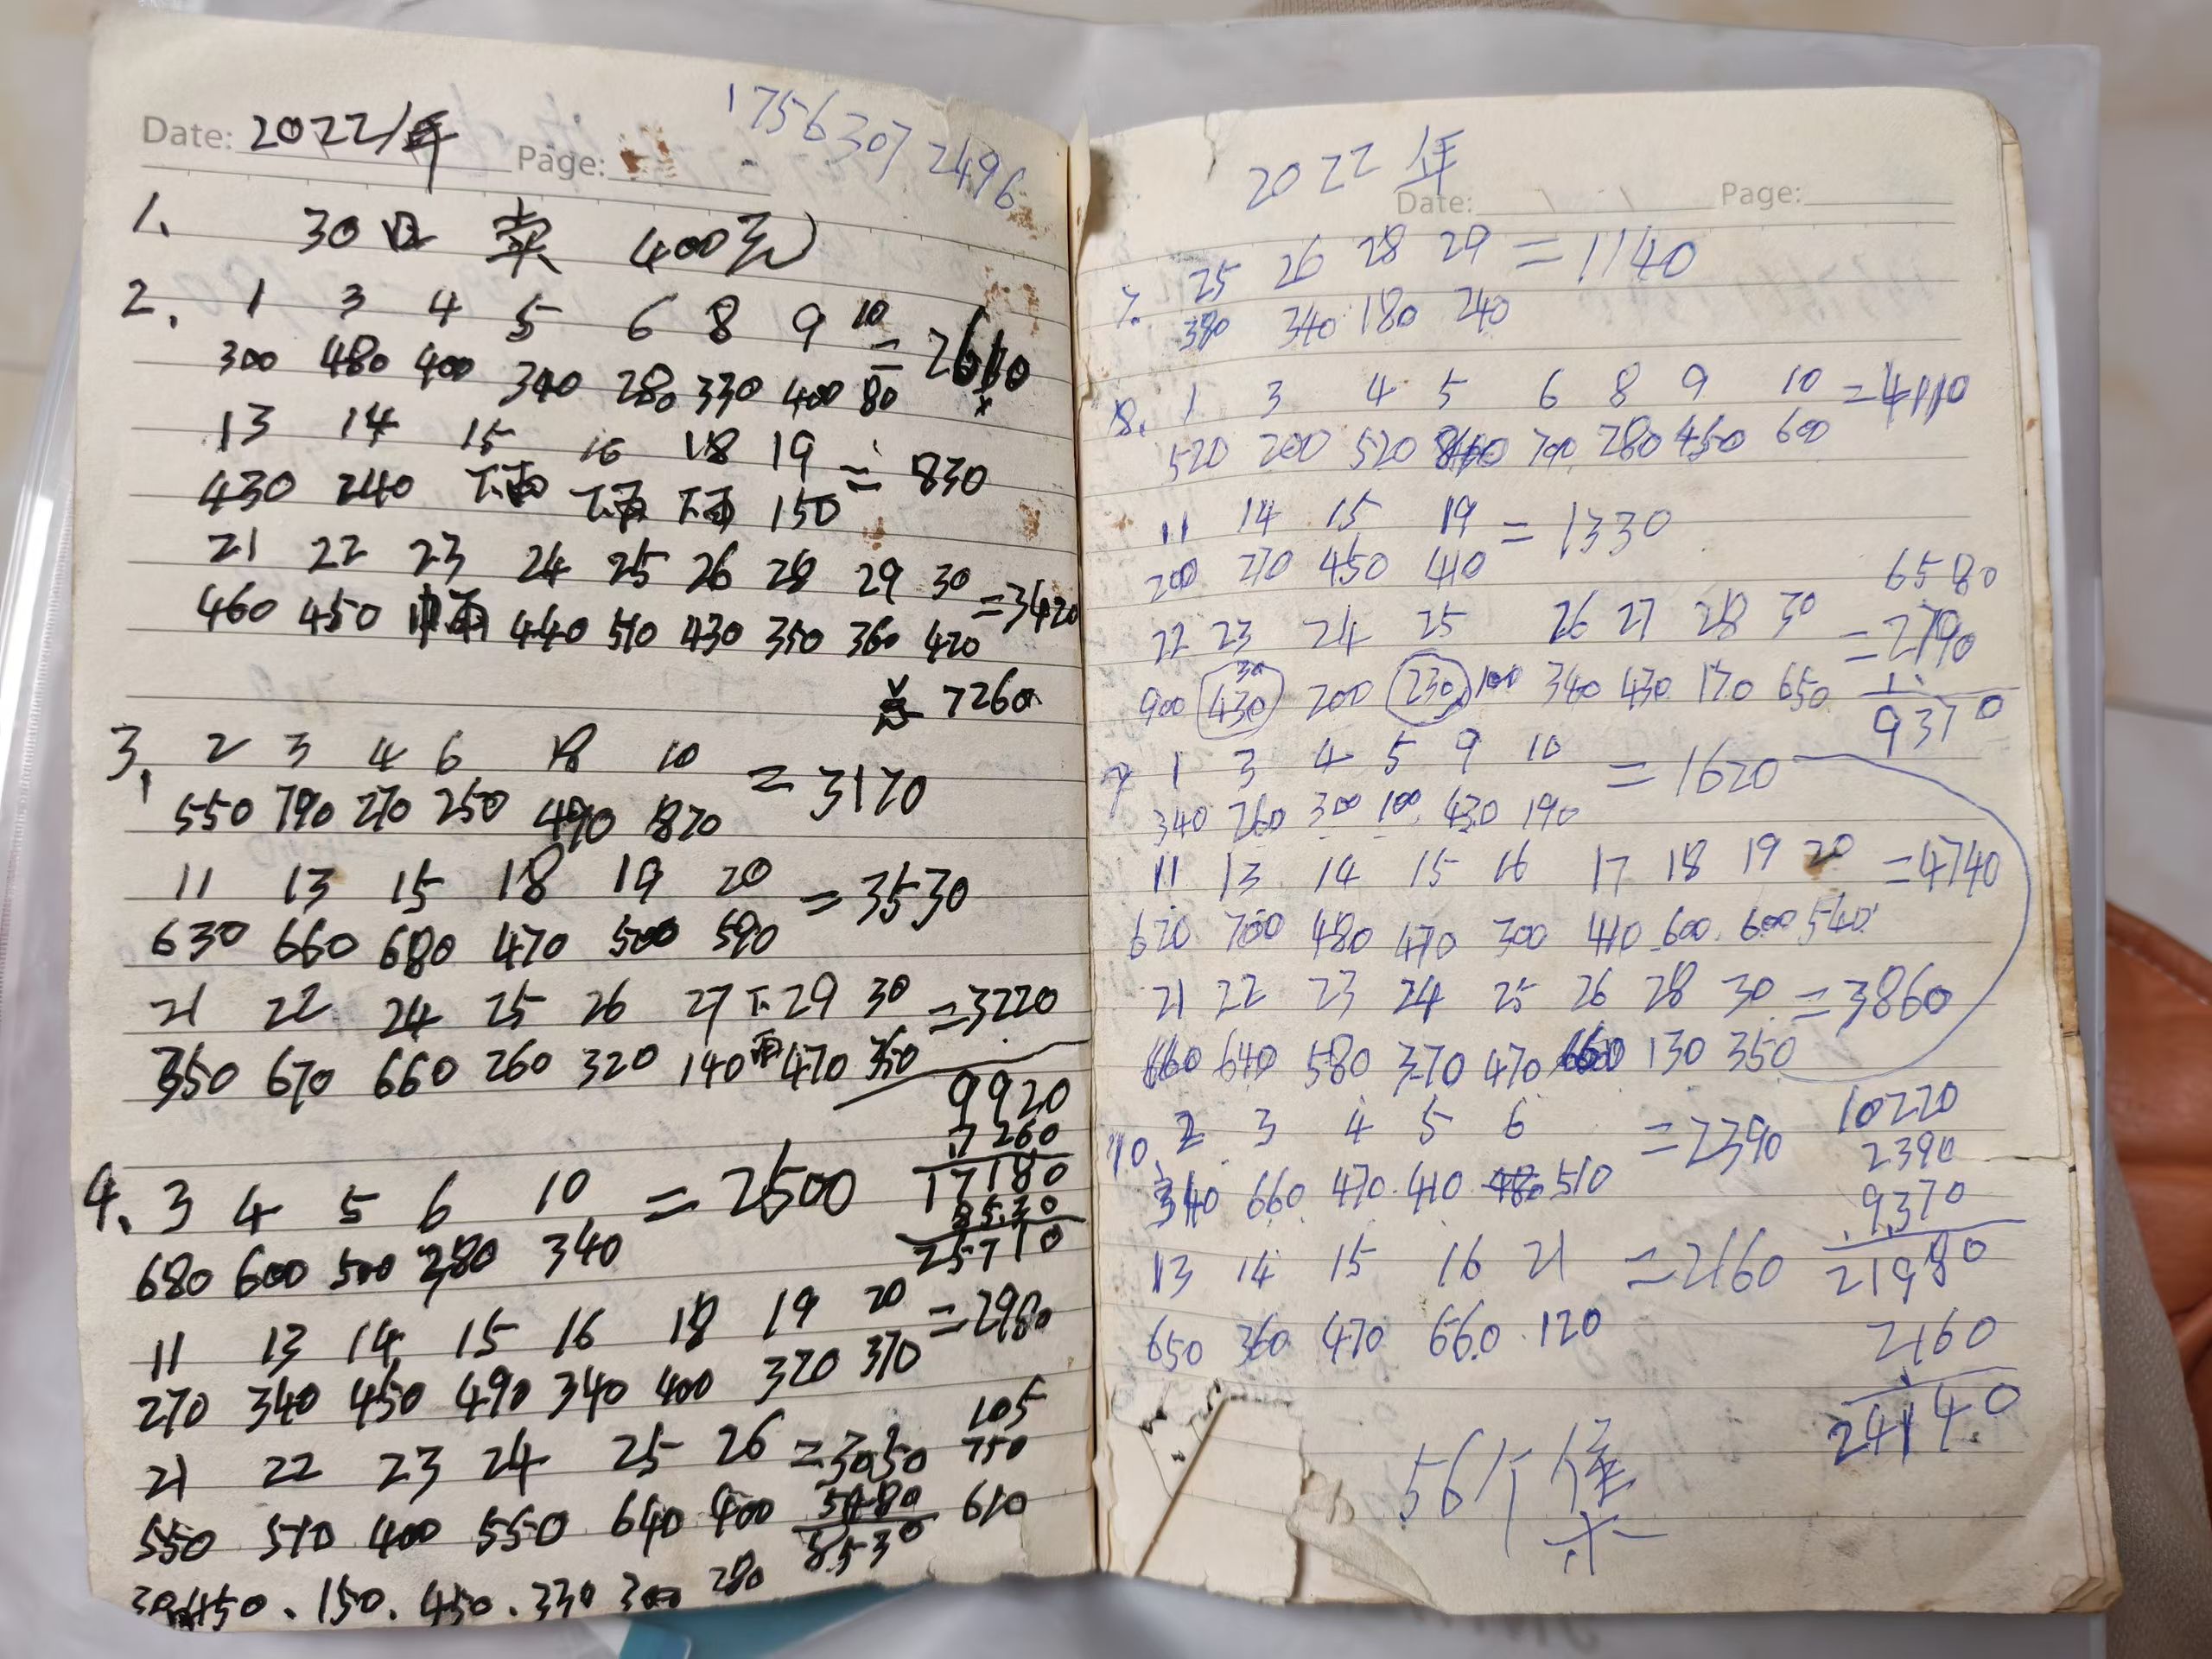 17563072496
Date: 2022年 Page:
1. 30日 卖 400元
2. 1 3 4 5 6 8 9 10 = 2610
300 480 400 340 280 330 400 80
13 14 15 16 18 19 = 830
430 240 下雨 下雨 下雨 150
21 22 23 24 25 26 28 29 30 = 3420
460 450 中雨 440 510 430 350 360 420
总 7260
3. 2 3 4 6 8 10 = 3170
550 790 270 250 490 820
11 13 15 18 19 20 = 3530
630 660 680 470 500 590
21 22 24 25 26 27 下雨 29 30 = 3220
350 670 660 260 320 140 470 350
9920
7260
17180
8530
25710
4. 3 4 5 6 10 = 2500
680 600 500 380 340
11 13 14 15 16 18 19 20 = 2980
270 340 450 490 340 400 320 370
21 22 23 24 25 26 = 3050
550 510 400 550 640 400
5480
8530
105
750
610
450. 150. 450. 330 300 280
2022年
Date: Page:
7. 25 26 28 29 = 1140
380 340 180 240
8. 1 3 4 5 6 8 9 10 = 4110
520 200 520 700 280 450 600
11 14 15 19 = 1330
200 270 450 410
22 23 24 25 26 27 28 30 = 2790
900 430 30 200 230 100 340 430 170 650
6580
9370
9 1 3 4 5 9 10 = 1620
340 260 300 100 430 190
11 13 14 15 16 17 18 19 20 = 4740
620 700 480 470 300 410 600 600 540
21 22 23 24 25 26 28 30 = 3860
660 640 580 370 470 660 130 350
10. 2 3 4 5 6 = 2390
340 660 470 410 480 510
13 14 15 16 21 = 2160
650 360 470 660 120
10220
2390
9370
21980
2160
24140
56个